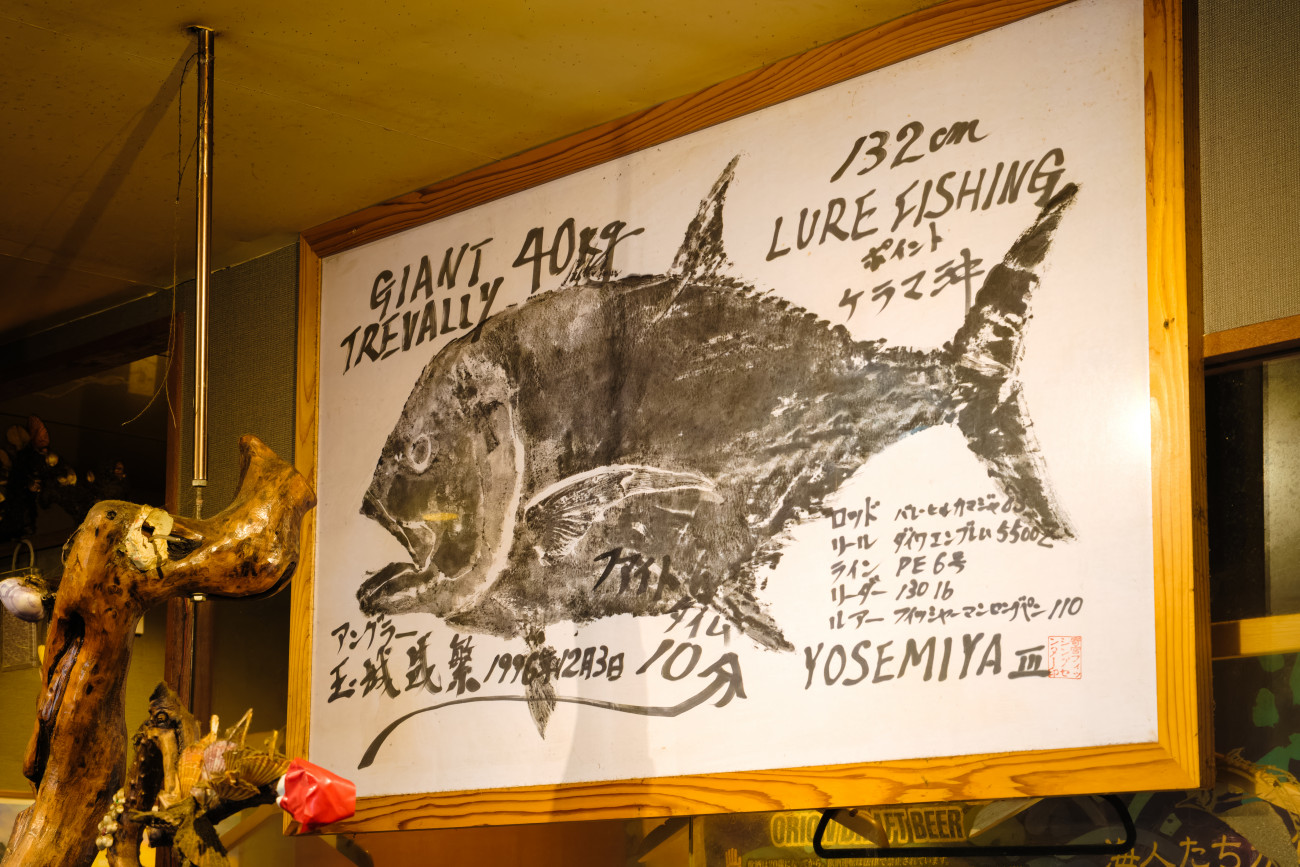 GIANT 40kg
TREVALLY
132cm
LURE FISHING
ポイント
ケラマ沖
ファイト
タイム
10分
アングラー
玉城 武繁
1996年12月3日
ロッド
リール ダイワエンブレム5500Z
ライン PE6号
リーダー 130 lb
ルアー フィッシャーマンロングペン 110
YOSEMIYA III
ORION DRAFT BEER
海人たち